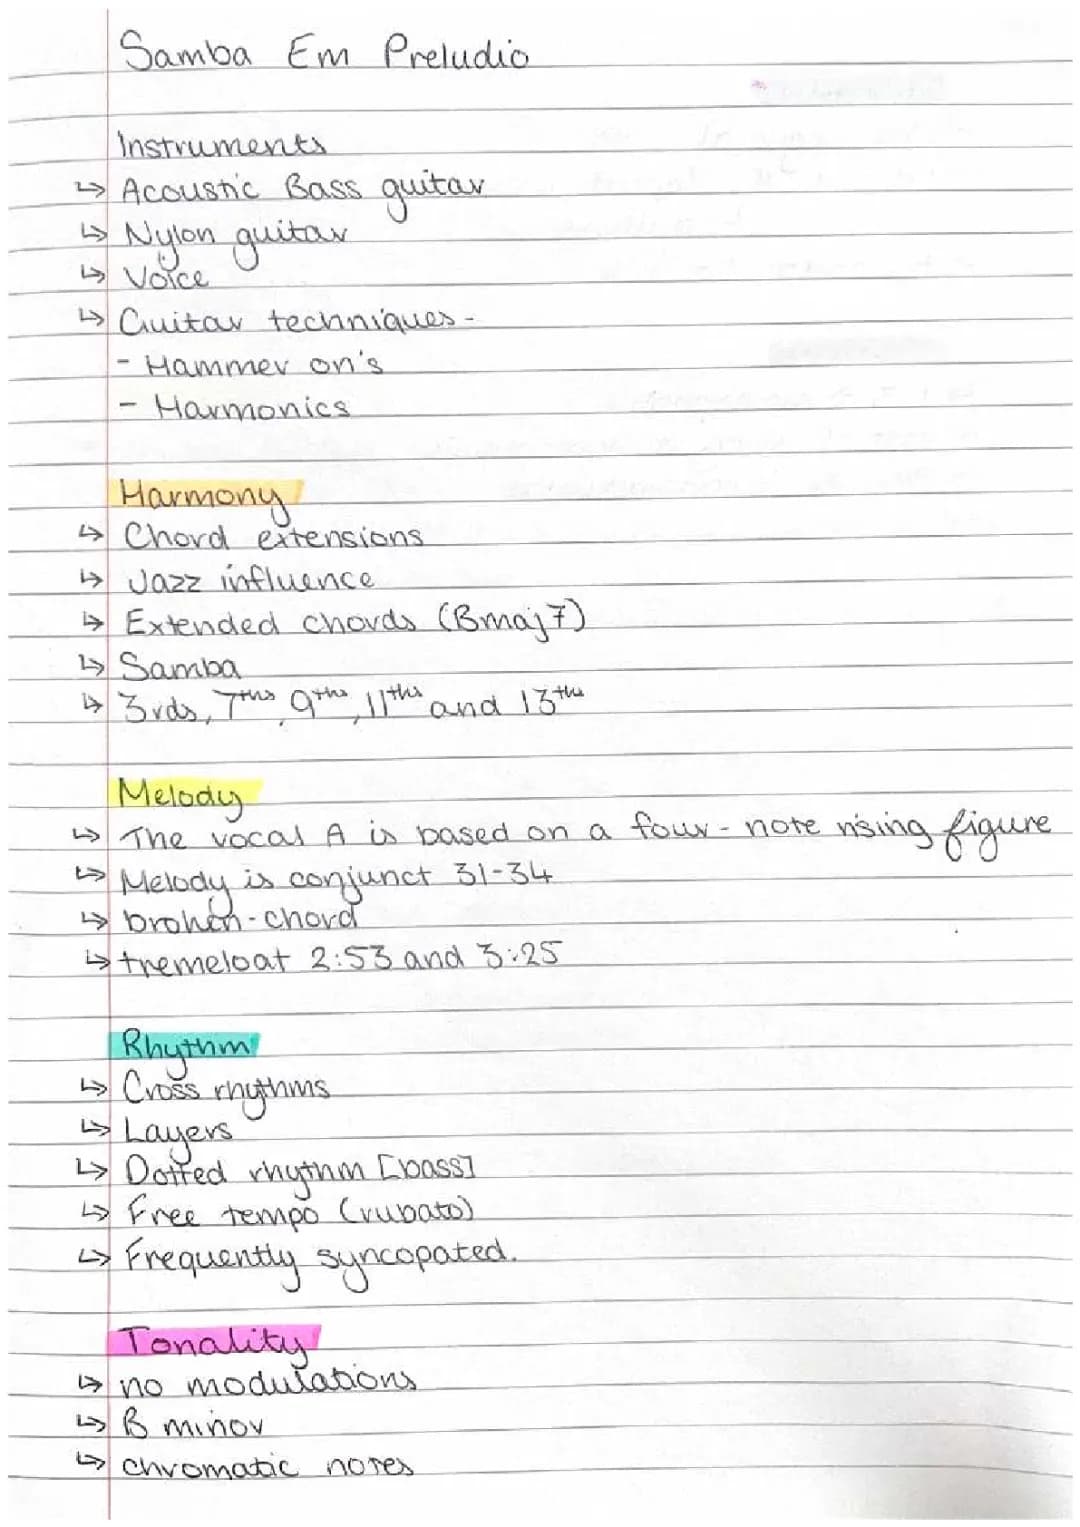 Samba Em Preludio
Instruments
↳ Acoustic Bass guitar
↳ Nylon guitar
↳ Voice
↳ Guitar techniques -
- Hammer on's
- Harmonics
Harmony
↳ Chord extensions
↳ Jazz influence
↳ Extended chords (Bmaj7)
↳ Samba
↳ 3rds, 7ths, 9ths, 11ths and 13ths
Melody
↳ The vocal A is based on a four-note rising figure
↳ Melody is conjunct 31-34
↳ broken-chord
↳ tremeloat 2:53 and 3:25
Rhythm
↳ Cross rhythms
↳ Layers
↳ Dotted rhythm [bass]
↳ Free tempo (rubato)
↳ Frequently syncopated.
Tonality
↳ no modulations
↳ B minor
↳ chromatic notes